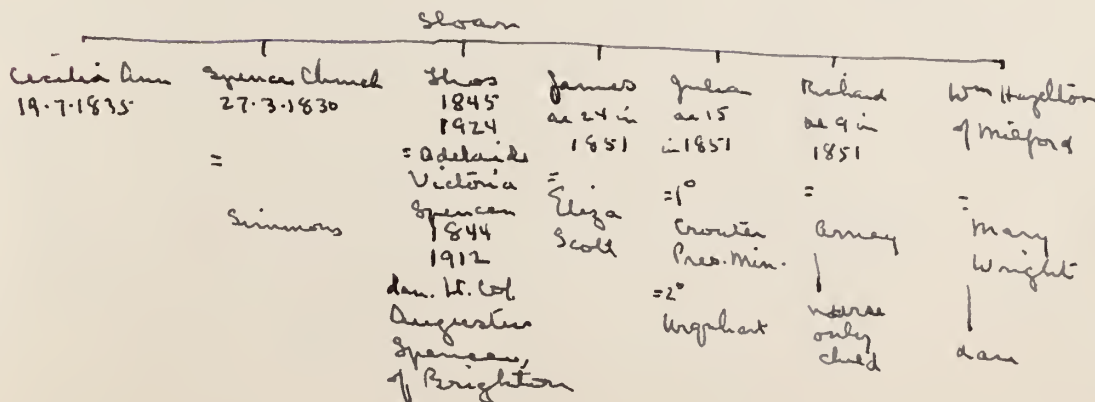 Sloan
Cecilia Ann
19.7.1835
Spencer Church
27.3.1830
=
Simmons
Thos
1845
1924
= Adelaide
Victoria
Spencer
1844
1912
dau. Lt. Col.
Augustus
Spencer,
of Brighton
James
ae 24 in
1851
=
Eliza
Scott
Julia
ae 15
in 1851
=1°
Crouter
Pres. Min.
=2°
Urquhart
Richard
ae 9 in
1851
=
Arney
nurse
only
child
Wm Hazelton
of Milford
=
Mary
Wright
dau